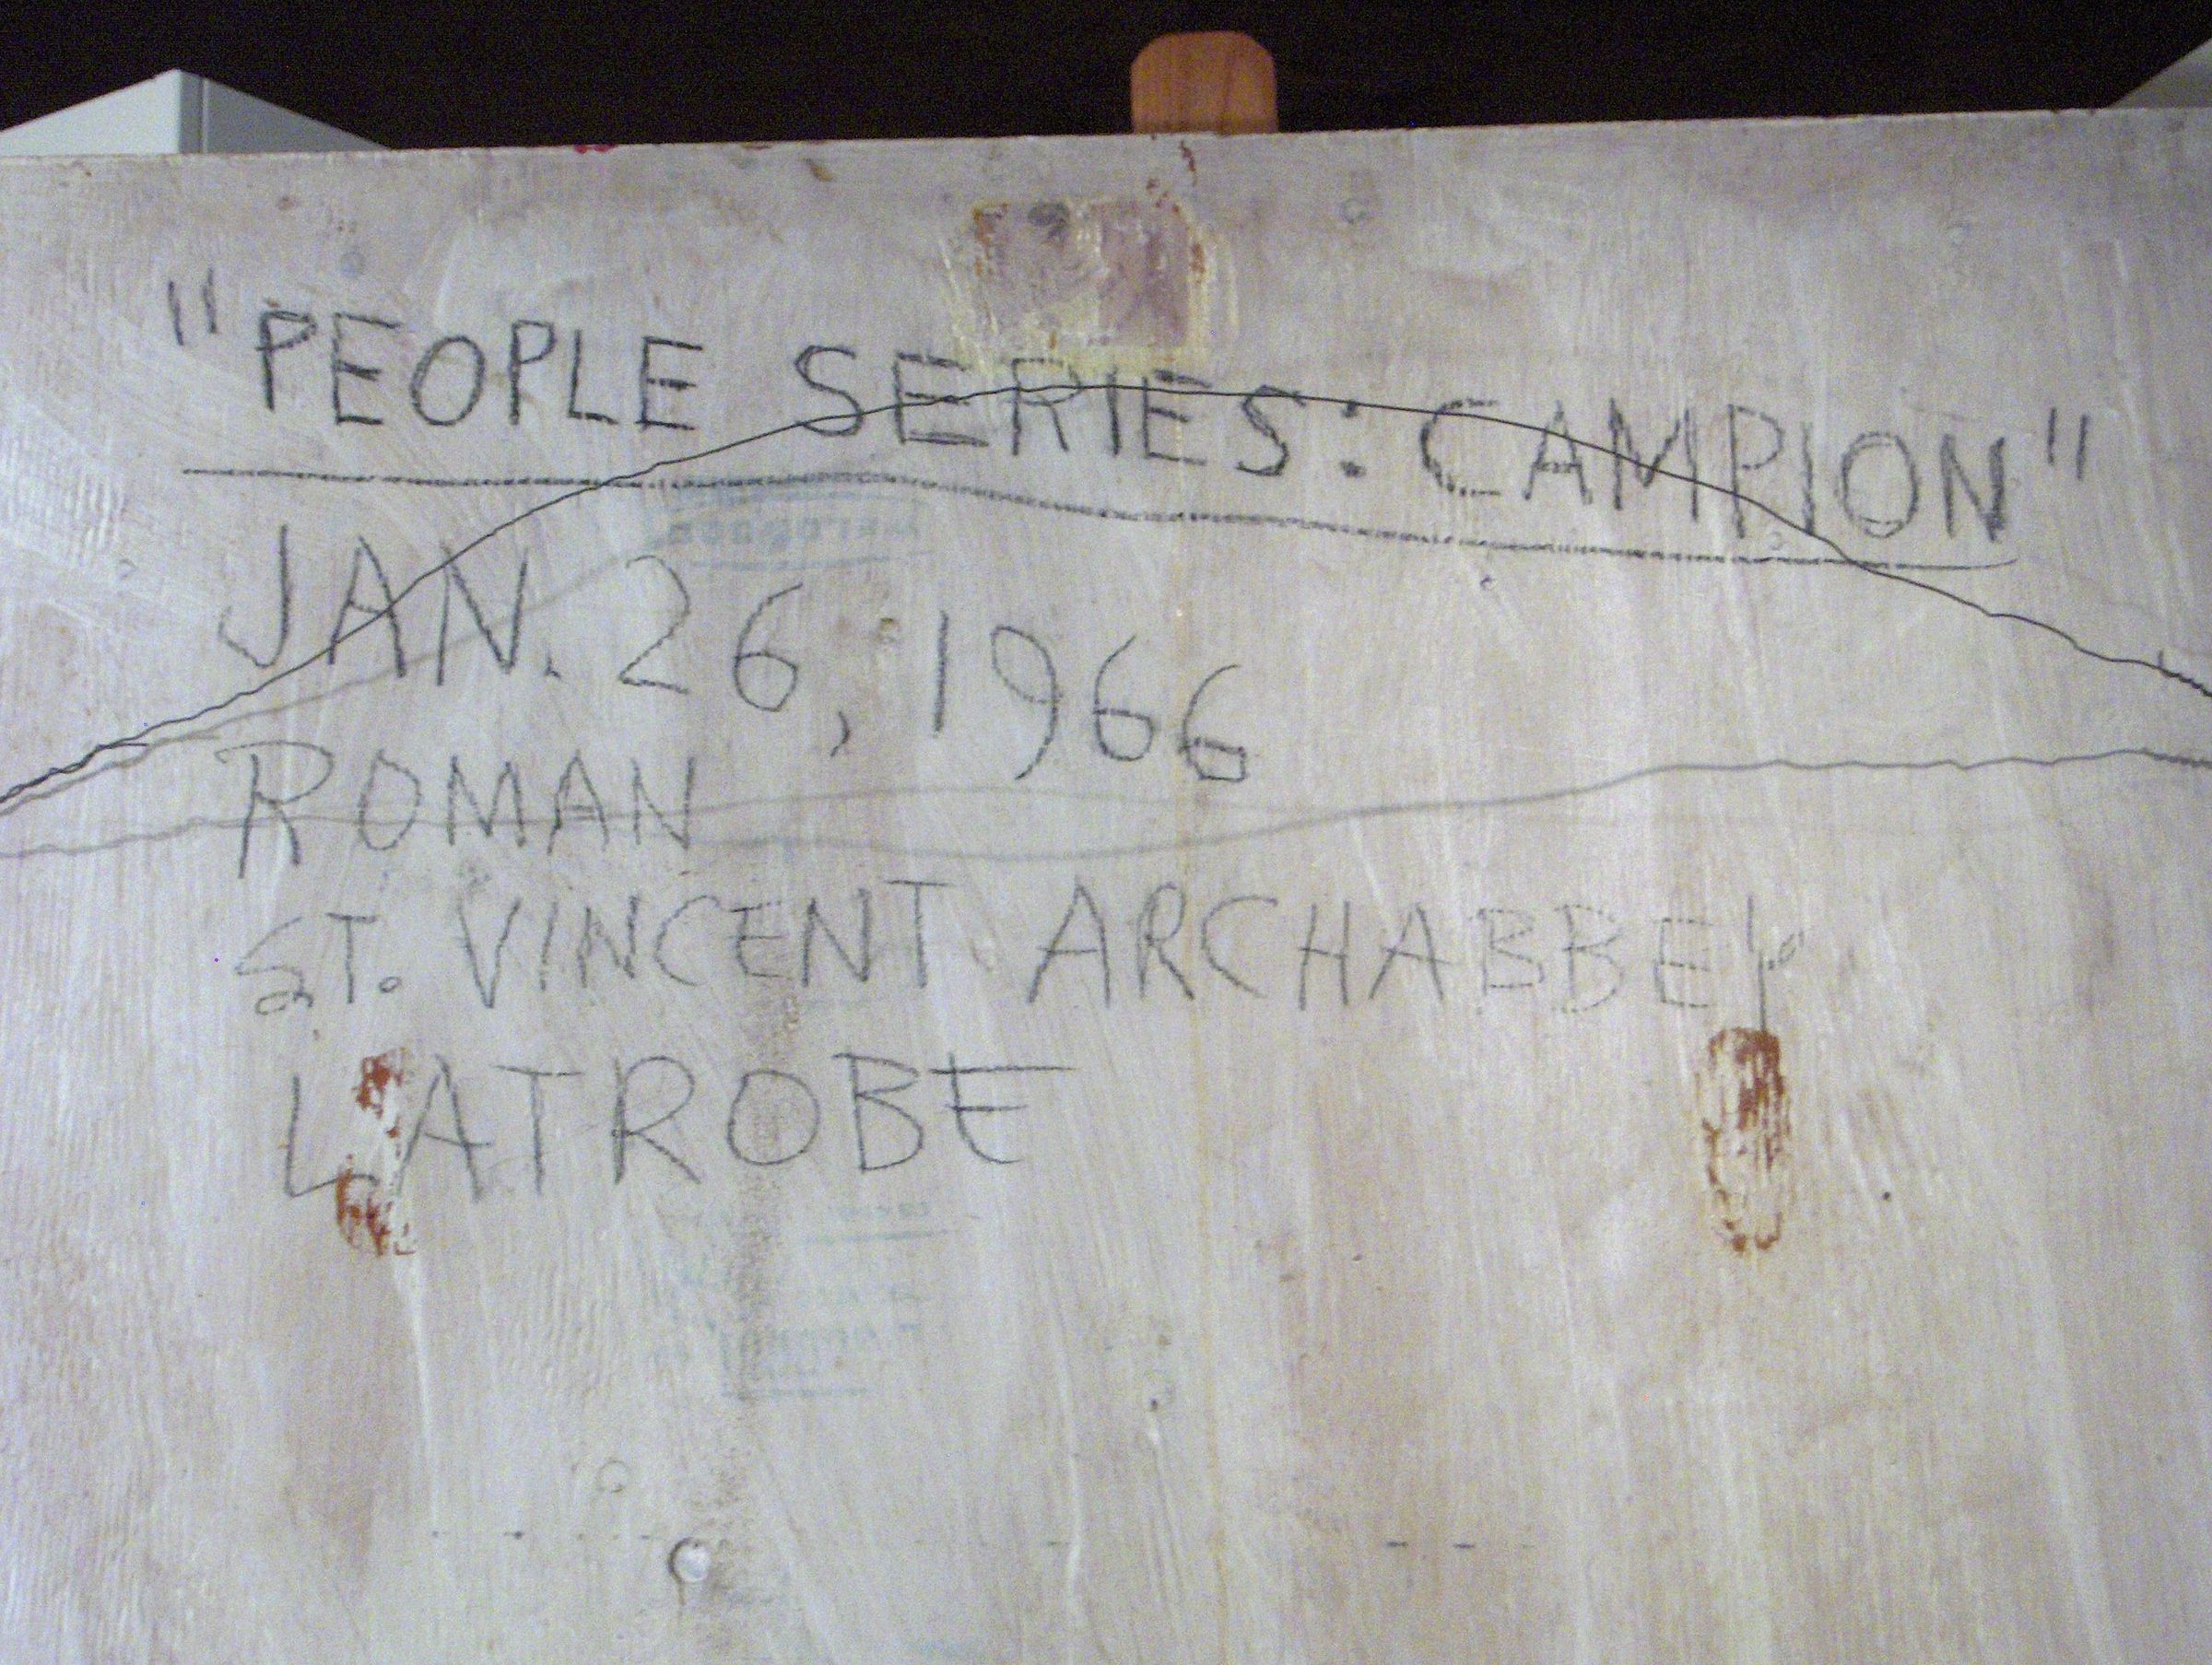 "PEOPLE SERIES: CAMPION"
JAN. 26, 1966
ROMAN
ST. VINCENT ARCHABBEY
LATROBE